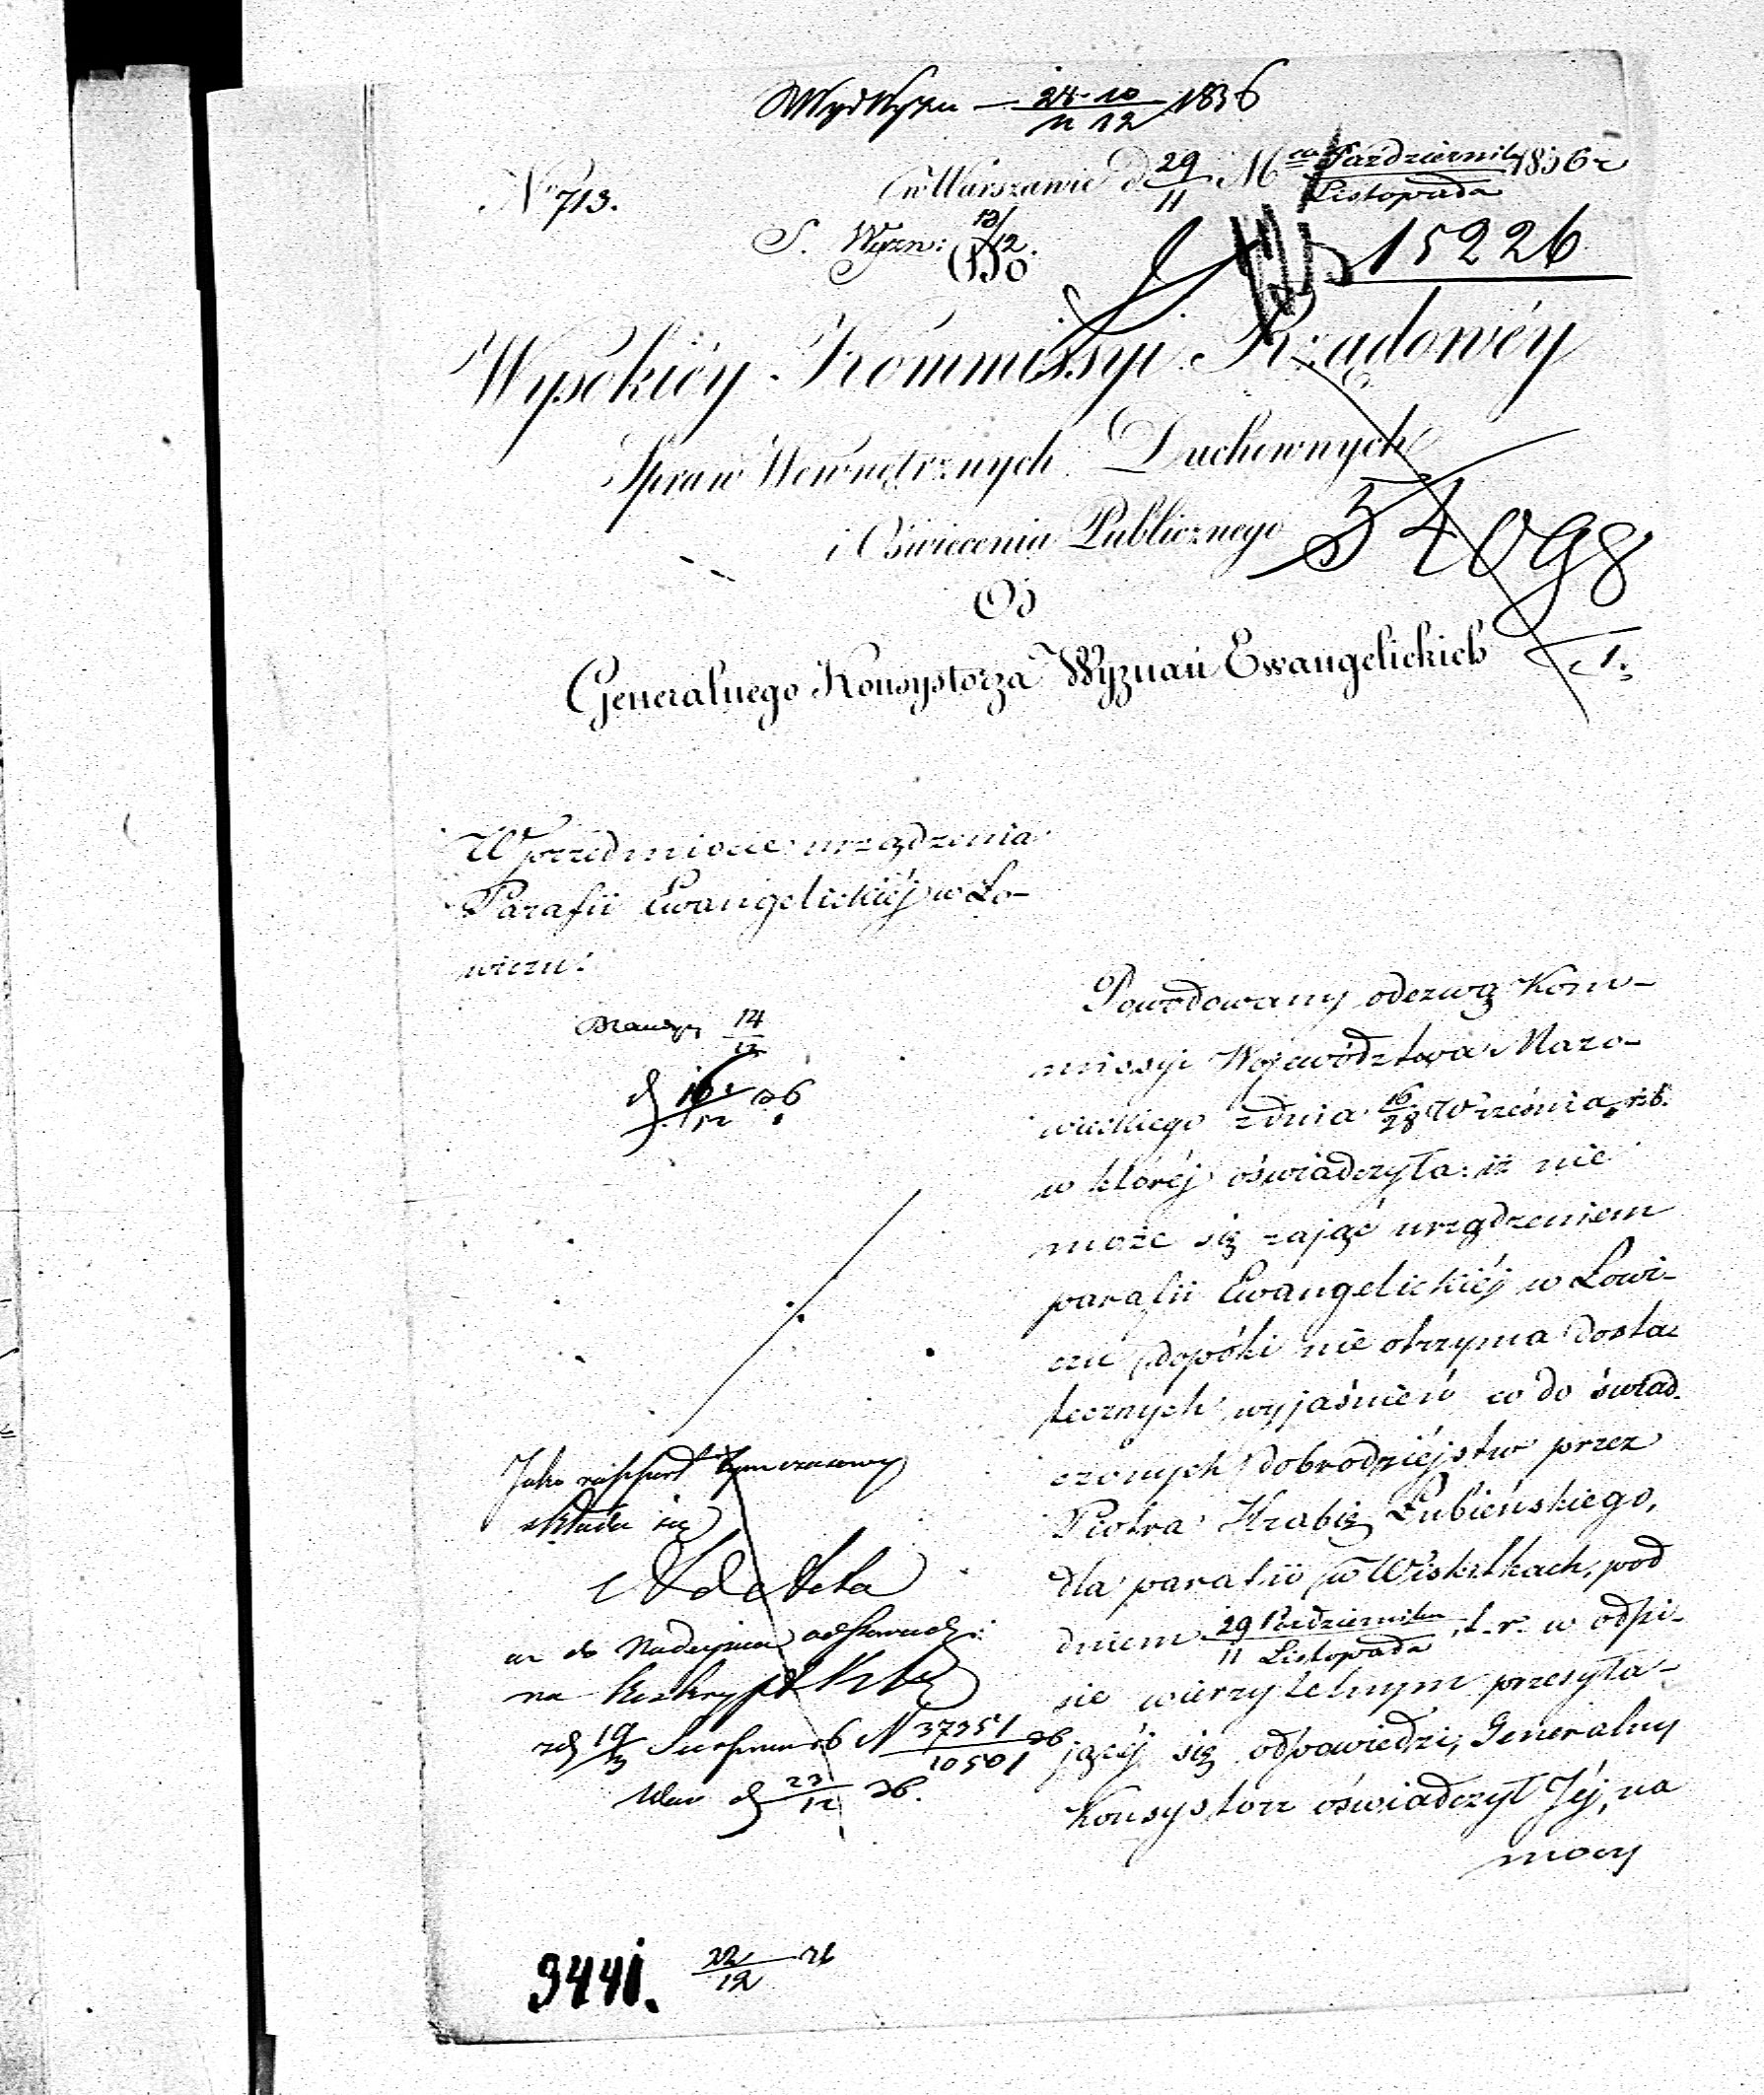 24-10 1836
n 12
No 713.
w Warszawie d 29/11 Mca Października/Listopada 1836 r
S. Wyzn: 13/12.
Do
15226
Wysokiéy Kommissyi Rządowéy
Spraw Wewnętrznych Duchownych
i Oświecenia Publicznego
54098
Od
1.
Generalnego Konsystorza Wyznań Ewangelickich
W przedmiocie urządzenia
Parafii Ewangelickiéj w Ło-
wiczu.
14/12
d 16/12 36
Powodowany odezwą Kom-
missyi Województwa Mazo-
wieckiego z dnia 16/28 Września, r.b.
w któréj oświadczyła: iż nie
może się zająć urządzeniem
parafii Ewangelickiéj w Łowi-
czu dopóki nie otrzyma dosta-
tecznych wyjaśnień co do świad-
czonych dobrodziéjstw przez
Piotra Hrabię Łubieńskiego,
dla parafii w Wiskitkach, pod
dniem 29 Października/11 Listopada t. r. w odpi-
sie wierzytelnym przesyła-
jącéj się odpowiedzi, Generalny
Konsystorz oświadczył Jéj, na
mocy
Jako rapport tymczasowy
składa się
ad Acta
do Nadejścia odpowiedzi
na Reskrypt
19/3 6 N 37351/10501 36
d 23/12 36.
9441. 22/12 36